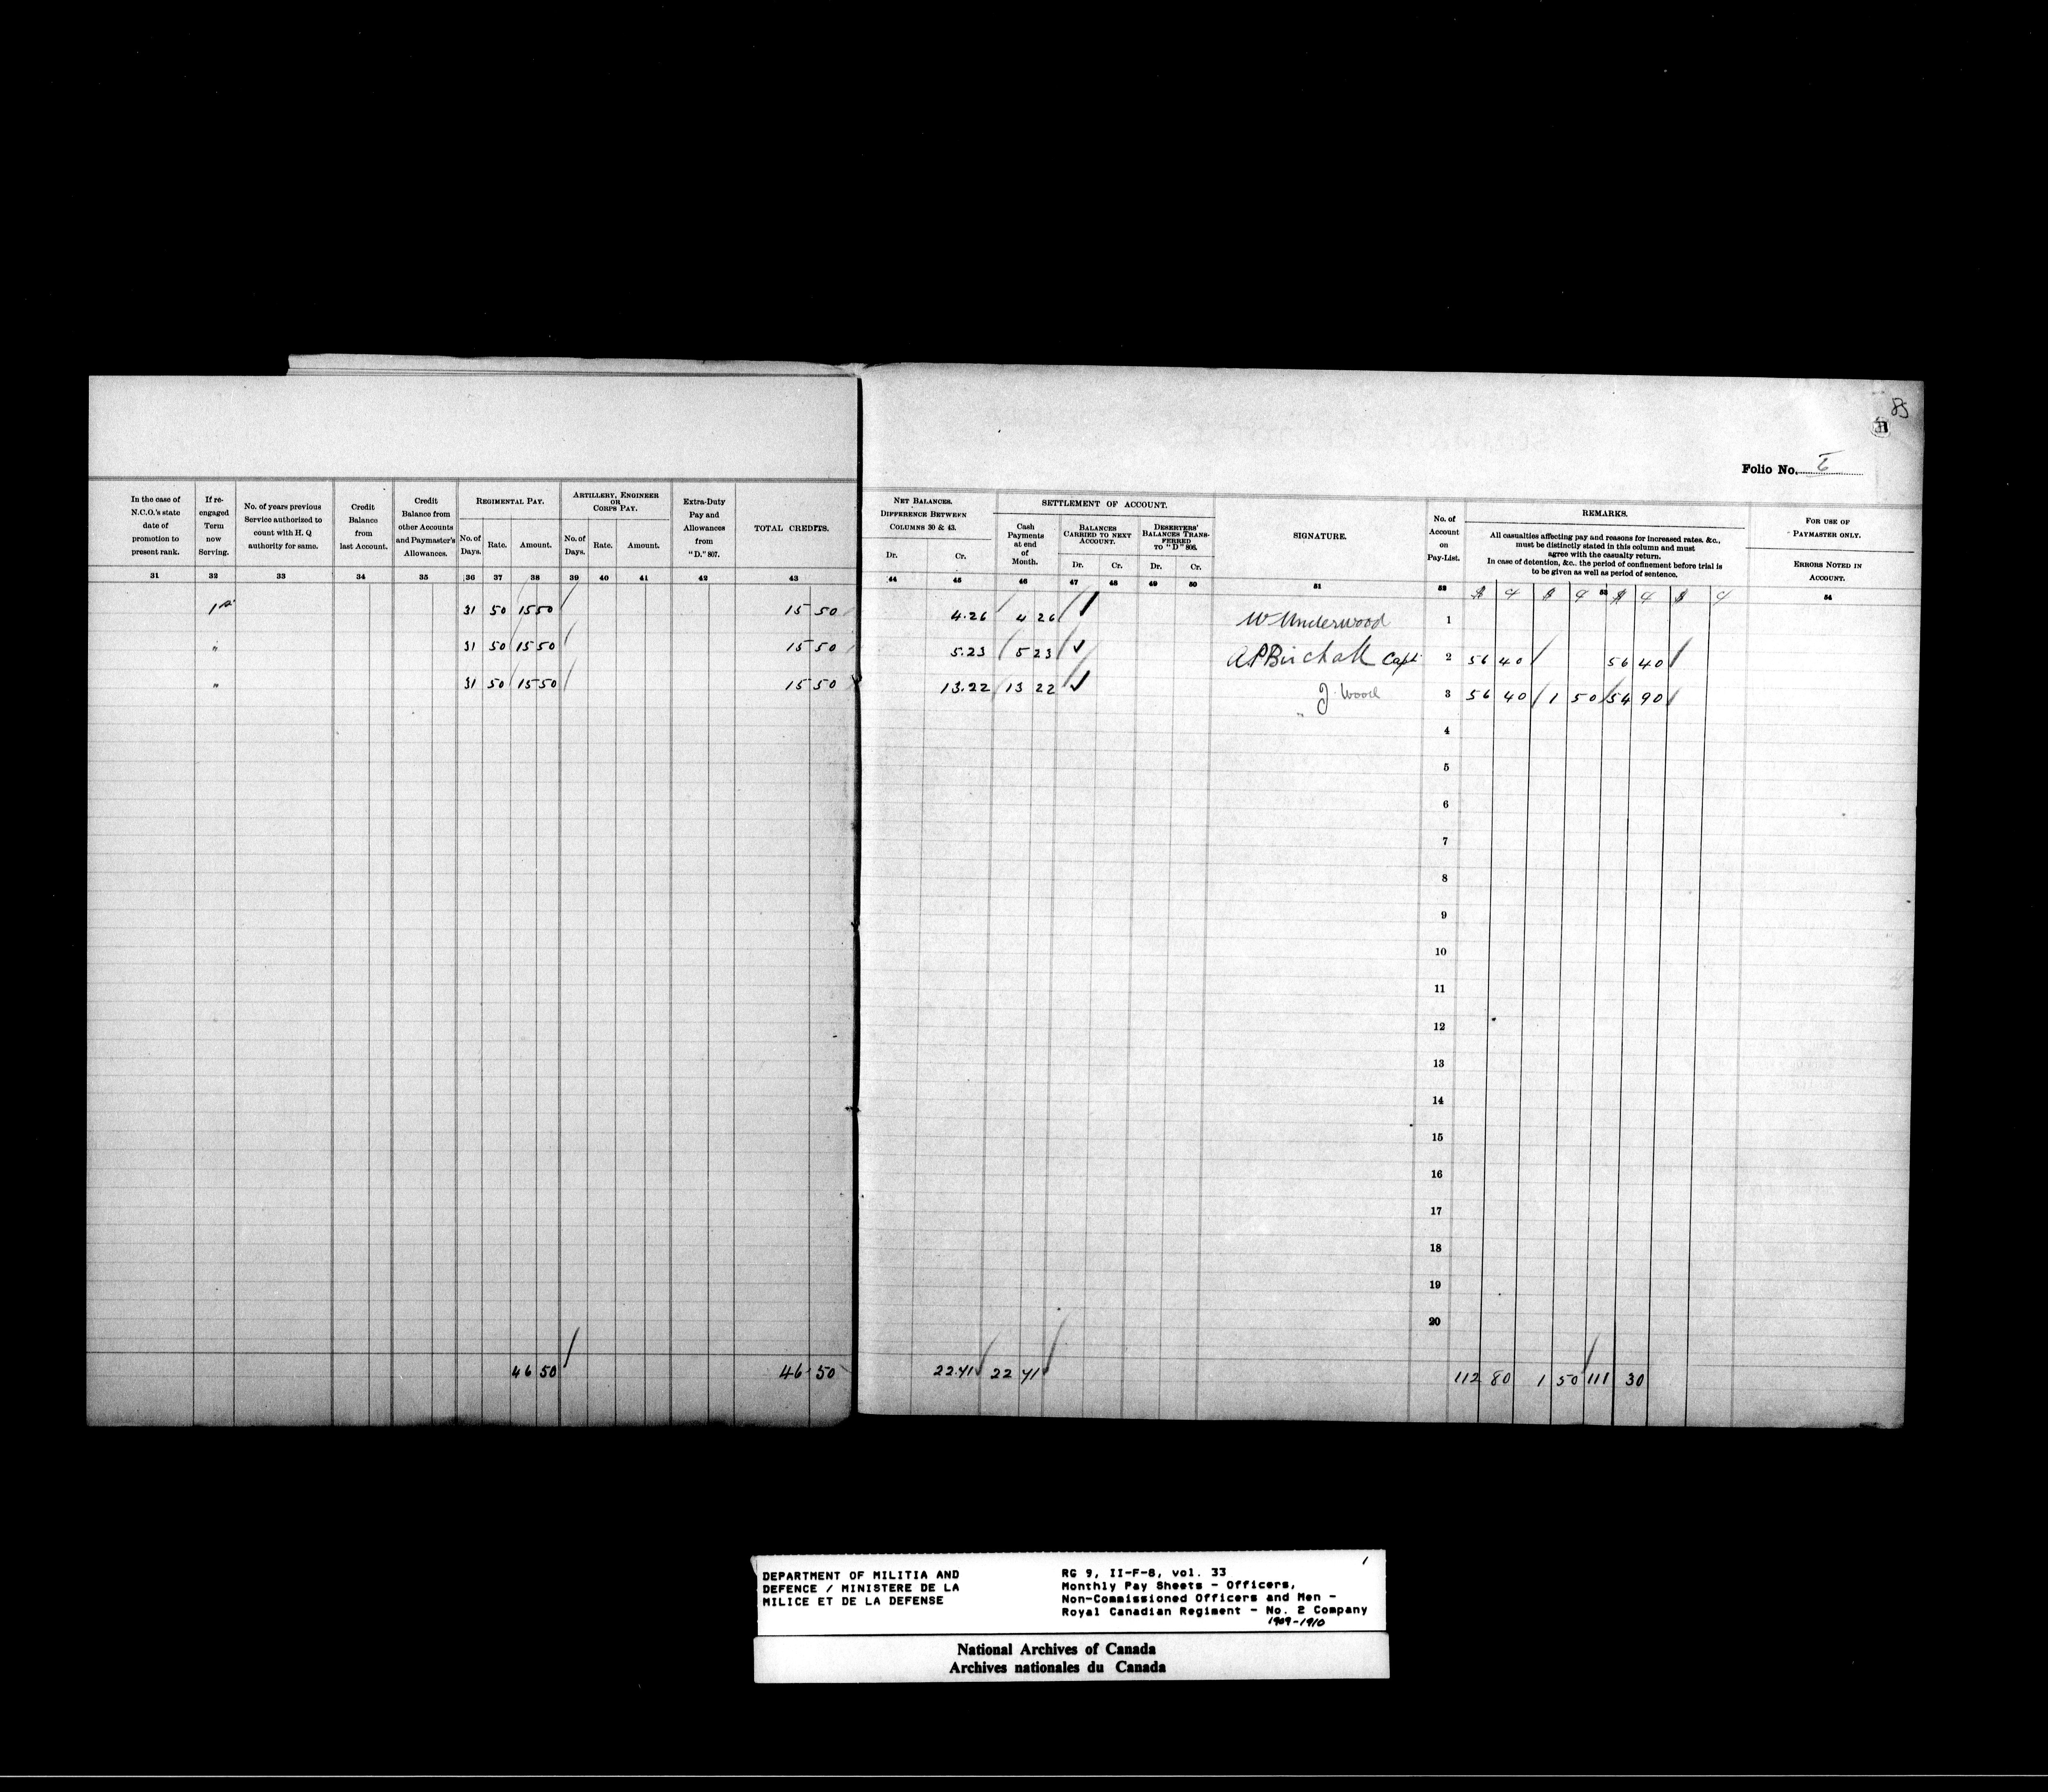 85
Folio No. 6
In the case of N.C.O.'s state date of promotion to present rank.
If re-engaged Term now Serving.
No. of years previous Service authorized to count with H. Q authority for same.
Credit Balance from last Account.
Credit Balance from other Accounts and Paymaster's Allowances.
REGIMENTAL PAY.
No. of Days. Rate. Amount.
ARTILLERY, ENGINEER OR CORPS PAY.
No. of Days. Rate. Amount.
Extra-Duty Pay and Allowances from "D." 807.
TOTAL CREDITS.
NET BALANCES. DIFFERENCE BETWEEN COLUMNS 30 & 43.
Dr. Cr.
SETTLEMENT OF ACCOUNT.
Cash Payments at end of Month.
BALANCES CARRIED TO NEXT ACCOUNT.
Dr. Cr.
DESERTERS' BALANCES TRANSFERRED TO "D" 806.
Dr. Cr.
SIGNATURE.
No. of Account on Pay-List.
REMARKS.
All casualties affecting pay and reasons for increased rates, &c.,
must be distinctly stated in this column and must
agree with the casualty return.
In case of detention, &c., the period of confinement before trial is
to be given as well as period of sentence.
FOR USE OF PAYMASTER ONLY.
ERRORS NOTED IN ACCOUNT.
31 32 33 34 35 36 37 38 39 40 41 42 43 44 45 46 47 48 49 50 51 52 53 54
$ ¢ $ ¢ $ ¢ $ ¢
1st 31 50 15 50 15 50 4.26 4 26 W Underwood 1
" 31 50 15 50 15 50 5.23 5 23 A P Birchall Capt 2 56 40 56 40
" 31 50 15 50 15 50 13.22 13 22 J. Wood 3 56 40 1 50 54 90
4
5
6
7
8
9
10
11
12
13
14
15
16
17
18
19
20
46 50 46 50 22.71 22 71 112 80 1 50 111 30
1
DEPARTMENT OF MILITIA AND
DEFENCE / MINISTERE DE LA
MILICE ET DE LA DEFENSE
RG 9, II-F-8, vol. 33
Monthly Pay Sheets - Officers,
Non-Commissioned Officers and Men -
Royal Canadian Regiment - No. 2 Company
1909-1910
National Archives of Canada
Archives nationales du Canada